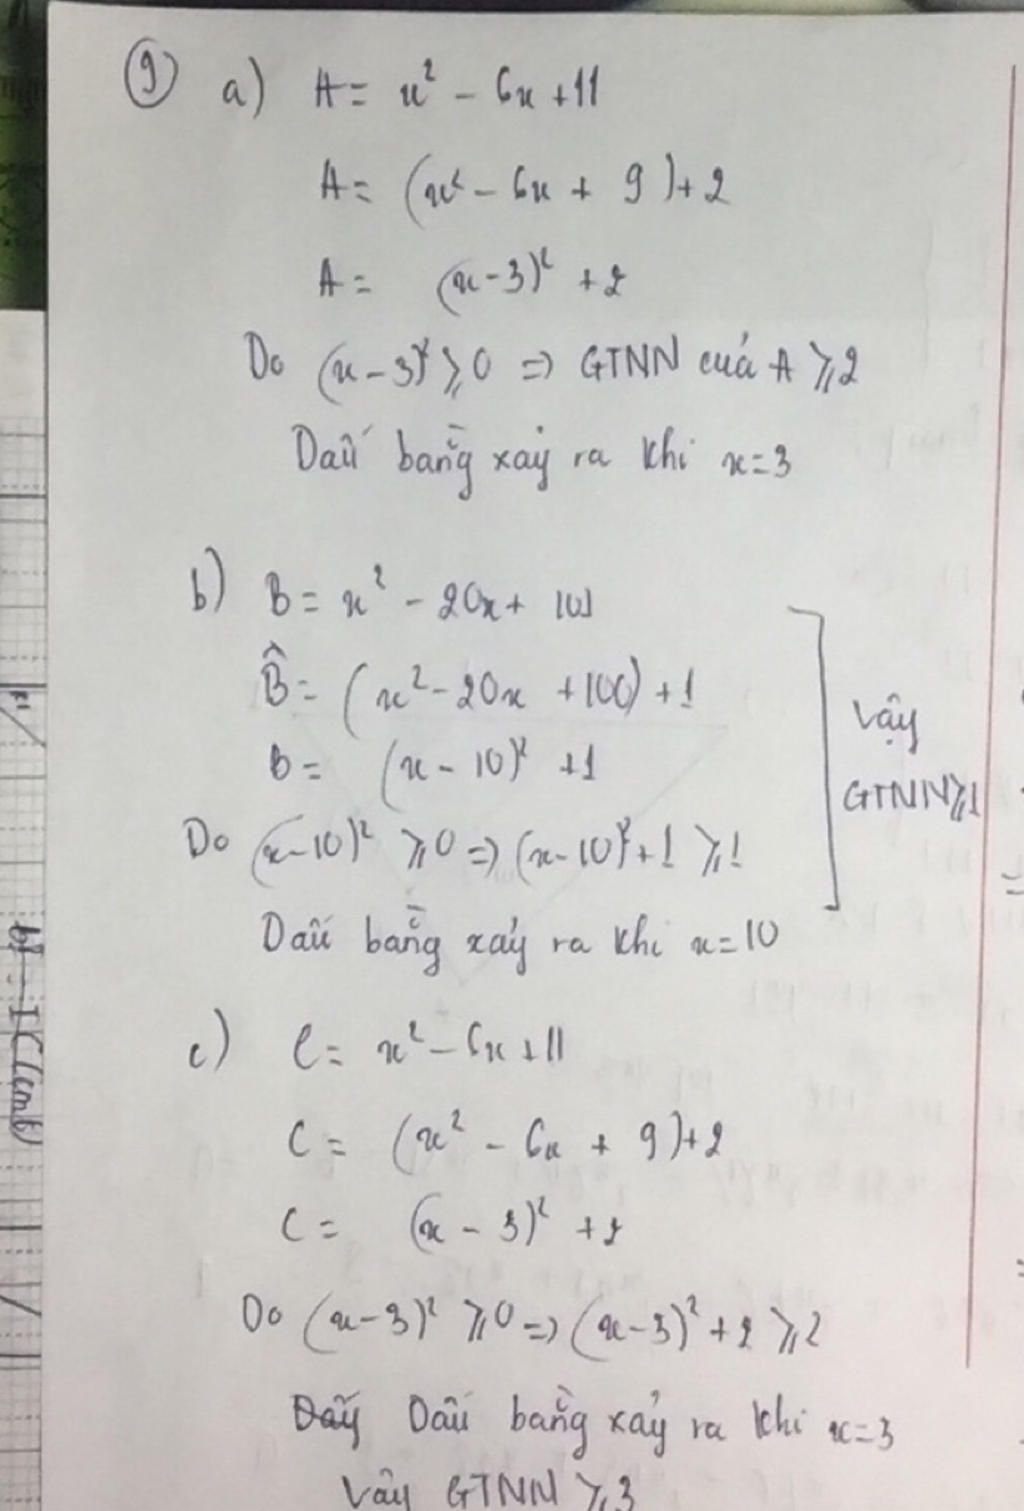 9 a) A = x² - 6x + 11
A = (x² - 6x + 9) + 2
A = (x - 3)² + 2
Do (x - 3)² ⩾ 0 => GTNN cuả A ⩾ 2
Dấu bằng xảy ra khi x = 3
b) B = x² - 20x + 101
B = (x² - 20x + 100) + 1
B = (x - 10)² + 1
Vậy
GTNN ⩾ 1
Do (x - 10)² ⩾ 0 => (x - 10)² + 1 ⩾ 1
Dấu bằng xảy ra khi x = 10
c) C = x² - 6x + 11
C = (x² - 6x + 9) + 2
C = (x - 3)² + 2
Do (x - 3)² ⩾ 0 => (x - 3)² + 2 ⩾ 2
Dấu bằng xảy ra khi x = 3
Vậy GTNN ⩾ 3